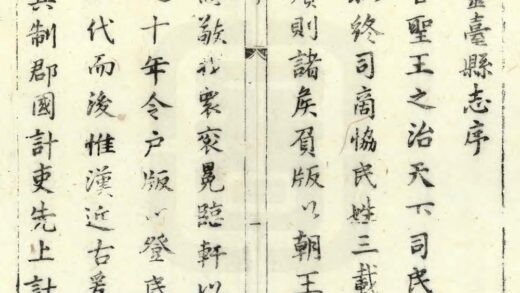 臺縣志序
聖王之治天下司民
終司商協民姓三載
則諸侯負版以朝王
一
敬袞冕臨軒以
十年令户版以登民
代而後惟漢近古爰
制郡國計吏先上計